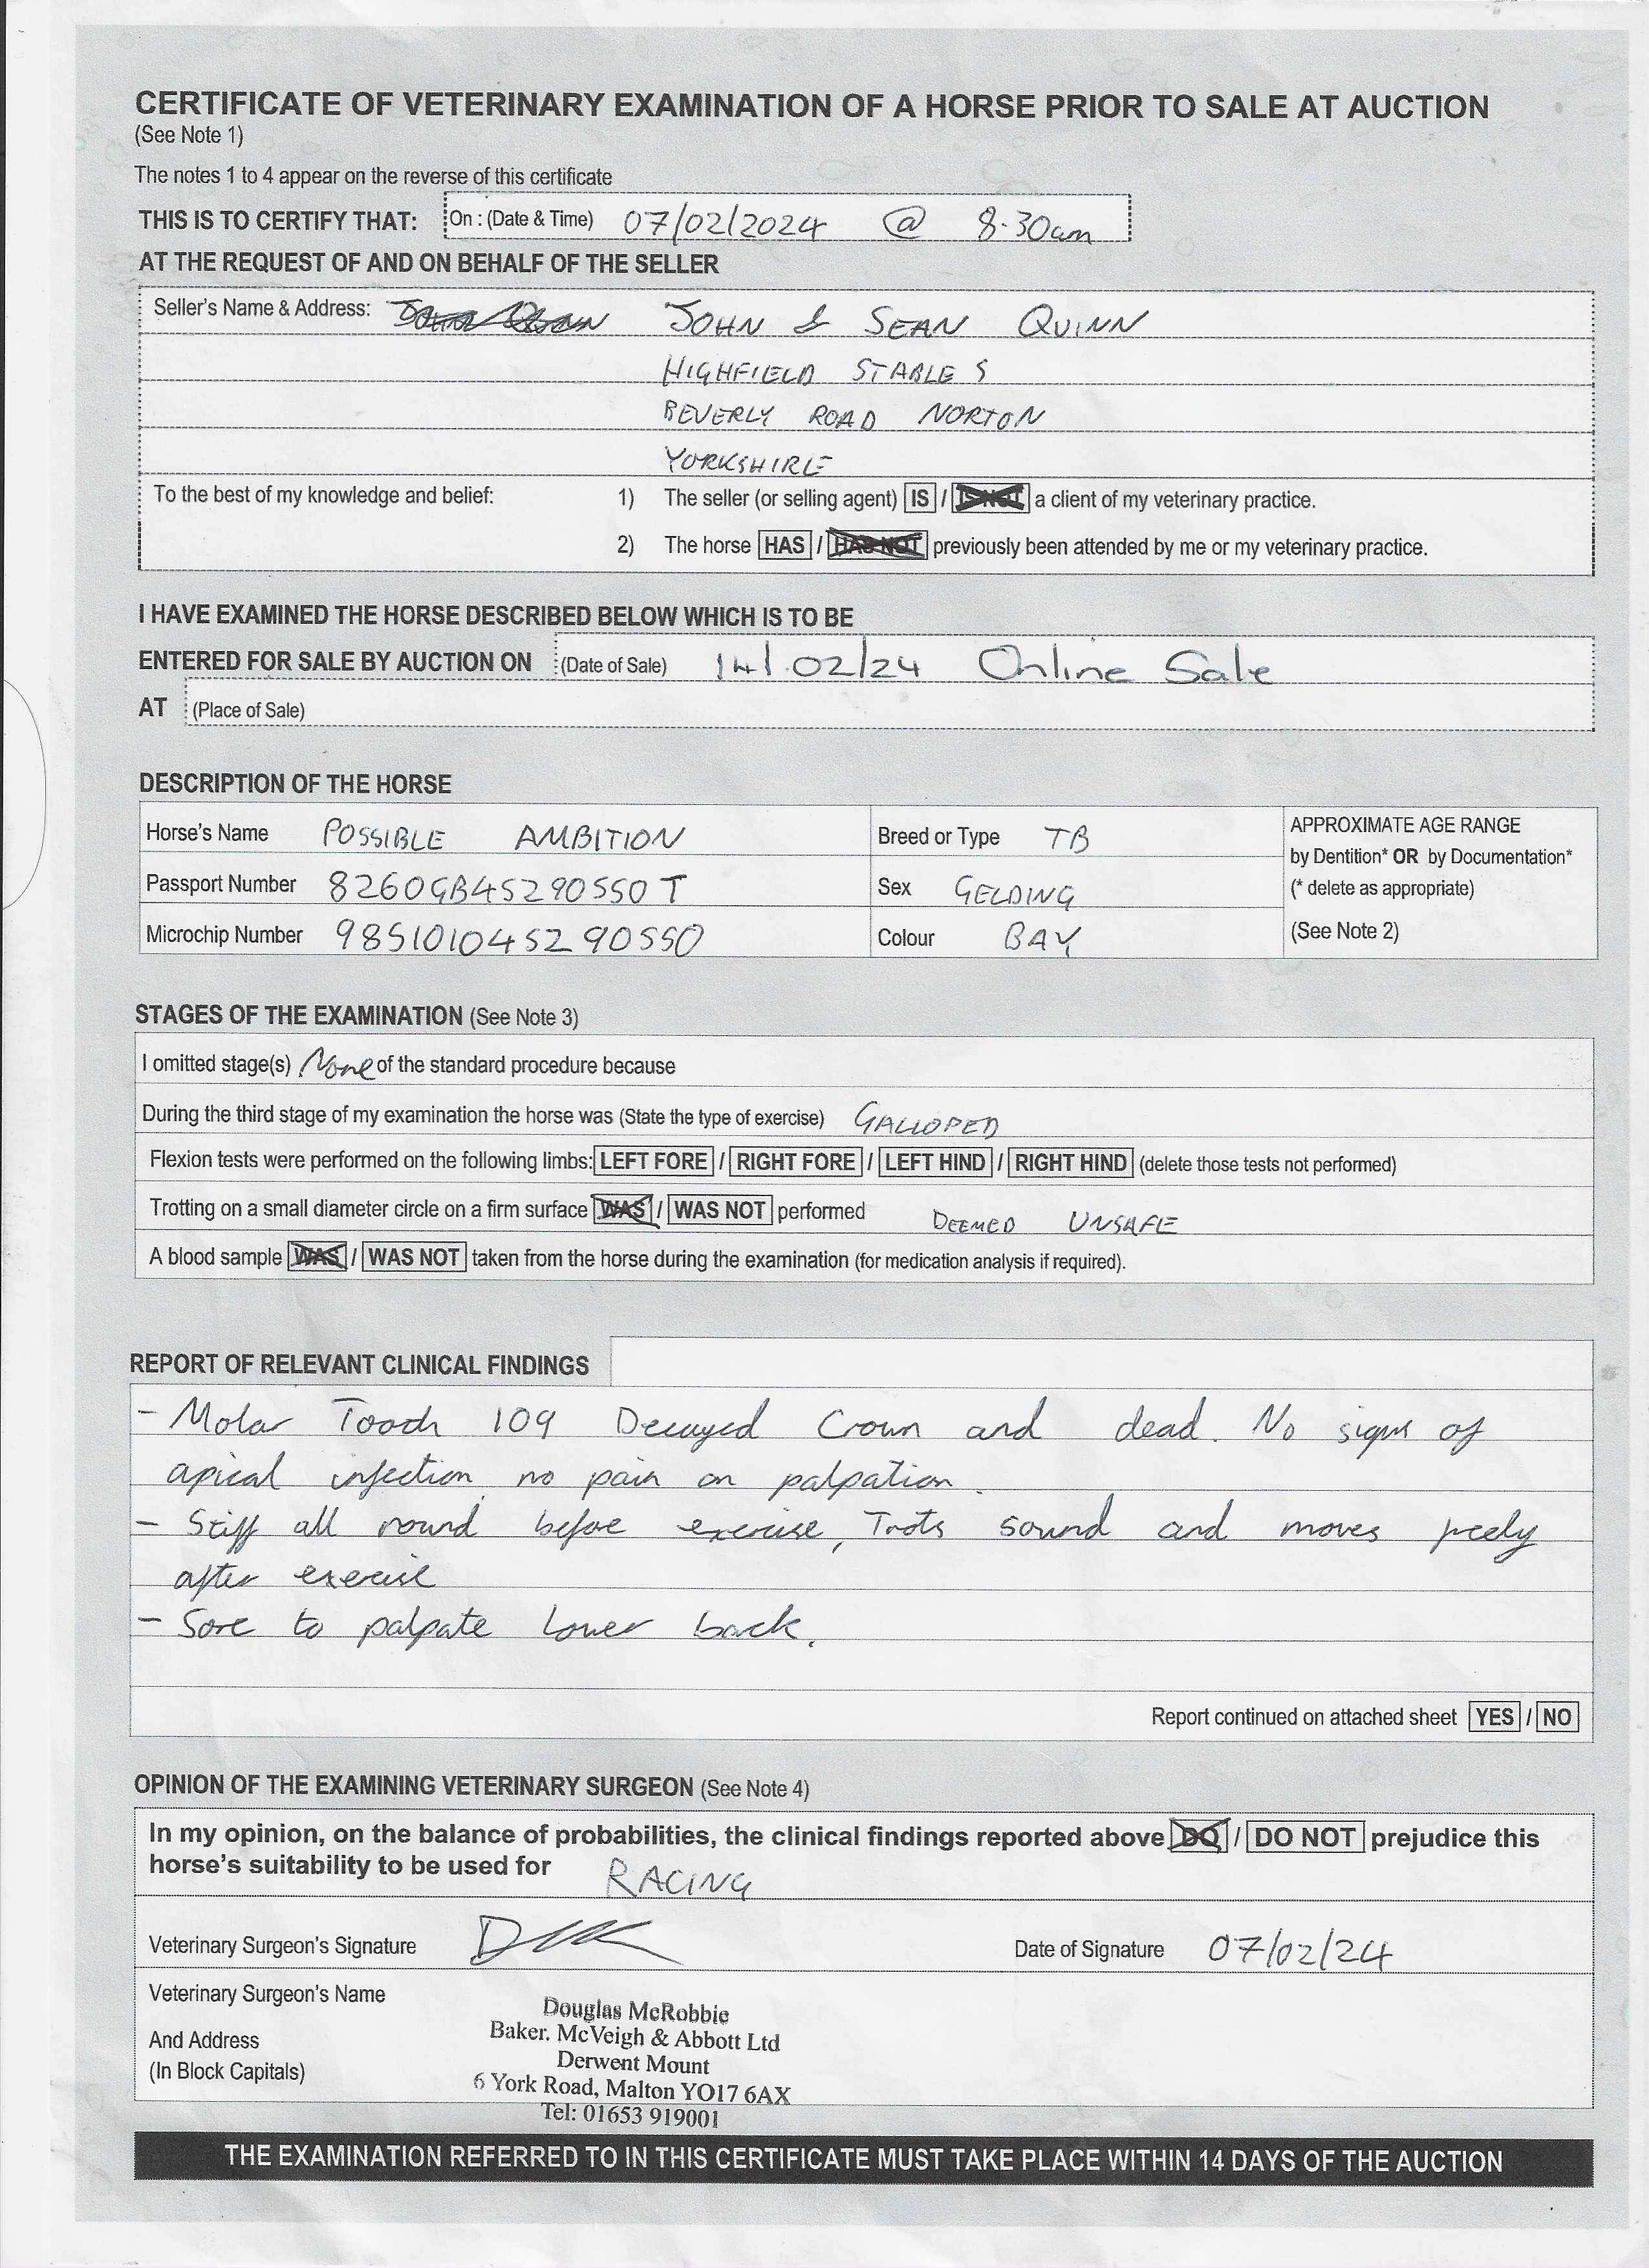 CERTIFICATE OF VETERINARY EXAMINATION OF A HORSE PRIOR TO SALE AT AUCTION
(See Note 1)
The notes 1 to 4 appear on the reverse of this certificate
THIS IS TO CERTIFY THAT: On : (Date & Time) 07/02/2024 @ 8.30am
AT THE REQUEST OF AND ON BEHALF OF THE SELLER
Seller's Name & Address: JOHN & SEAN QUINN
HIGHFIELD STABLES
BEVERLY ROAD NORTON
YORKSHIRE
To the best of my knowledge and belief: 1) The seller (or selling agent) IS / IS NOT a client of my veterinary practice.
2) The horse HAS / HAS NOT previously been attended by me or my veterinary practice.
I HAVE EXAMINED THE HORSE DESCRIBED BELOW WHICH IS TO BE
ENTERED FOR SALE BY AUCTION ON (Date of Sale) 14/02/24 Online Sale
AT (Place of Sale)
DESCRIPTION OF THE HORSE
Horse's Name POSSIBLE AMBITION
Passport Number 8260GB45290550T
Microchip Number 985101045290550
Breed or Type TB
Sex GELDING
Colour BAY
APPROXIMATE AGE RANGE
by Dentition* OR by Documentation*
(* delete as appropriate)
(See Note 2)
STAGES OF THE EXAMINATION (See Note 3)
I omitted stage(s) None of the standard procedure because
During the third stage of my examination the horse was (State the type of exercise) GALLOPED
Flexion tests were performed on the following limbs: LEFT FORE / RIGHT FORE / LEFT HIND / RIGHT HIND (delete those tests not performed)
Trotting on a small diameter circle on a firm surface WAS / WAS NOT performed DEEMED UNSAFE
A blood sample WAS / WAS NOT taken from the horse during the examination (for medication analysis if required).
REPORT OF RELEVANT CLINICAL FINDINGS
- Molar Tooth 109 Decayed Crown and dead. No signs of
apical infection no pain on palpation.
- Stiff all round before exercise, Trots sound and moves freely
after exercise
- Sore to palpate lower back.
Report continued on attached sheet YES / NO
OPINION OF THE EXAMINING VETERINARY SURGEON (See Note 4)
In my opinion, on the balance of probabilities, the clinical findings reported above DO / DO NOT prejudice this
horse's suitability to be used for RACING
Veterinary Surgeon's Signature
Date of Signature 07/02/24
Veterinary Surgeon's Name
And Address
(In Block Capitals)
Douglas McRobbie
Baker. McVeigh & Abbott Ltd
Derwent Mount
6 York Road, Malton YO17 6AX
Tel: 01653 919001
THE EXAMINATION REFERRED TO IN THIS CERTIFICATE MUST TAKE PLACE WITHIN 14 DAYS OF THE AUCTION